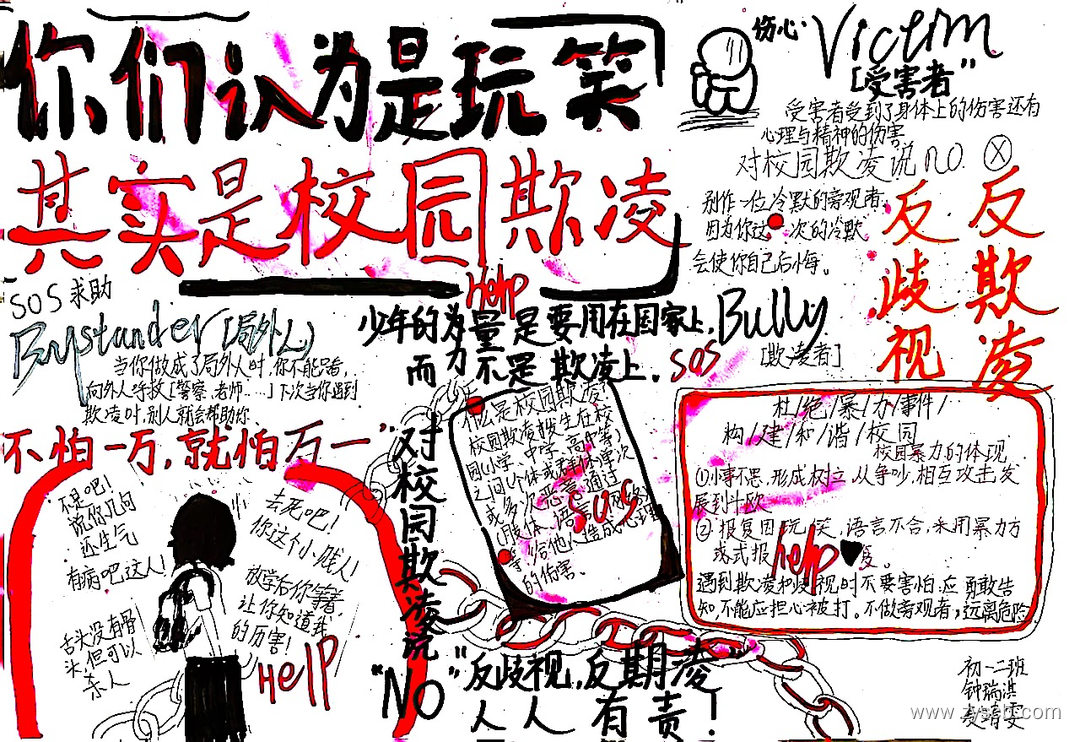 你们认为是玩笑
其实是校园欺凌
伤心
Victim
[受害者"
受害者受到了身体上的伤害还有
心理与精神的伤害
对校园欺凌说no.
别作一位冷默的旁观者
因为你这一次的冷默
会使你自己后悔。
反歧视
反欺凌
SOS求助
Bystander[局外人)
当你做成了局外人时,你不能只看,
向外人呼救[警察.老师……]下次当你遇到
欺凌时,别人就会帮助你
不怕一万,就怕万一"
Help
少年的力量是要用在国家上,
而不是欺凌上.
SOS
Bully
[欺凌者]
不是吧!
说你几句
还生气
有病吧这人!
舌头没有骨
头,但可以
杀人
去死吧!
你这个小贱人!
放学后你等着,
让你知道我
的厉害!
HELP
对校园欺凌说
"NO"
什么是校园欺凌
校园欺凌发生在校
园(小学、中学、高中等)
之间
或多次恶意通过
SOS
等,给他人造成心理
的伤害.
杜/绝/暴/力/事件/
构/建/和/谐/校园
校园暴力的体现
①小事不忍,形成对立,从争吵,相互攻击,发
展到斗欧
②报复因玩笑,语言不合,采用暴力方
或式报复。
help
遇到欺凌和歧视时不要害怕,应勇敢告
知,不能应担心被打。不做旁观者,远离危险
"反歧视,反期凌"
人人有责!
初一二班
钟瑞淇